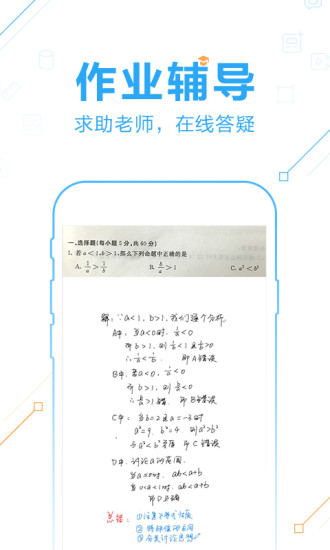 作业辅导
求助老师，在线答疑
一、选择题(每小题5分,共60分)
1. 若a<1,b>1,那么下列命题中正确的是
A. 1/a>1/b B. b/a>1 C. a²<b²
解：∵a<1, b>1, 我们逐个分析.
A中: 当a<0时, 1/a<0
而b>1, 则 1/b<1且1/b>0
∴1/a<1/b. 即A错误
B中. 若a<0, 1/a<0
而b>1, 则 b/a<0
∴b/a>1错. 即B错误
C中: 当b=2且a=-3时
a²=9, b²=4 则a²>b²
与a²<b²矛盾 即C错误
D中. 讨论a的范围.
当a≤0时. ab<a+b
当0<a<1时. ab<a+b
即D正确
总结:
①注意不等式性质
②特殊值的应用
③分类讨论思想